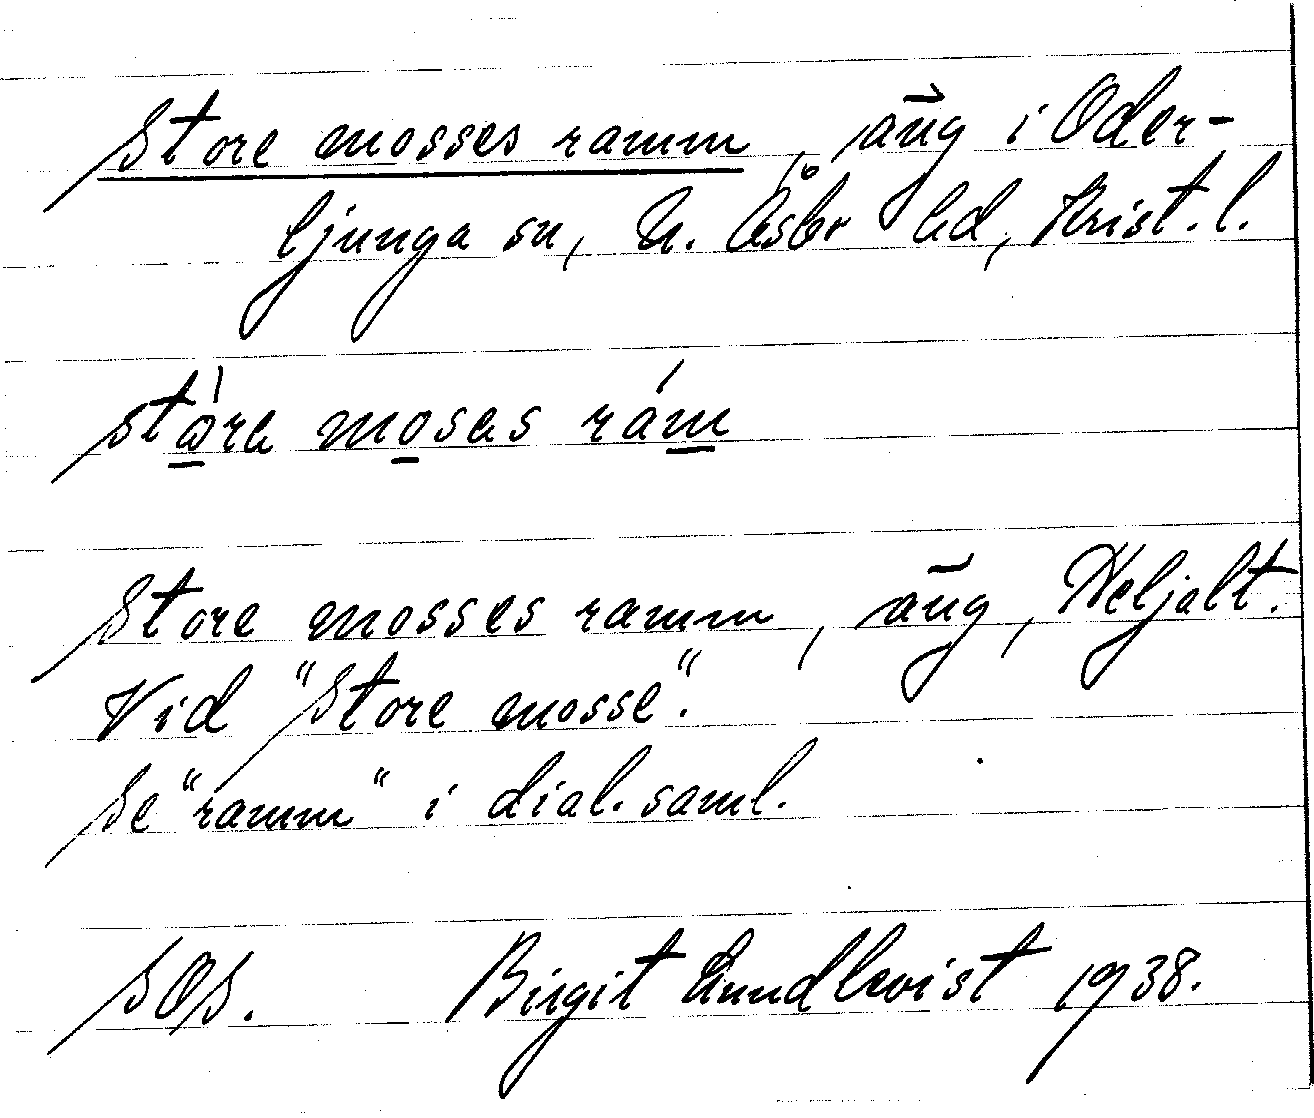 Store mosses ramm, äng i Oder-
ljunga sn, N. Åsbo hd, Krist. l.
störa moses rám
Store mosses ramm, äng, Heljalt.
Vid "Store mosse".
Se "ramm" i dial. saml.
SOS. Birgit Lundkvist 1938.